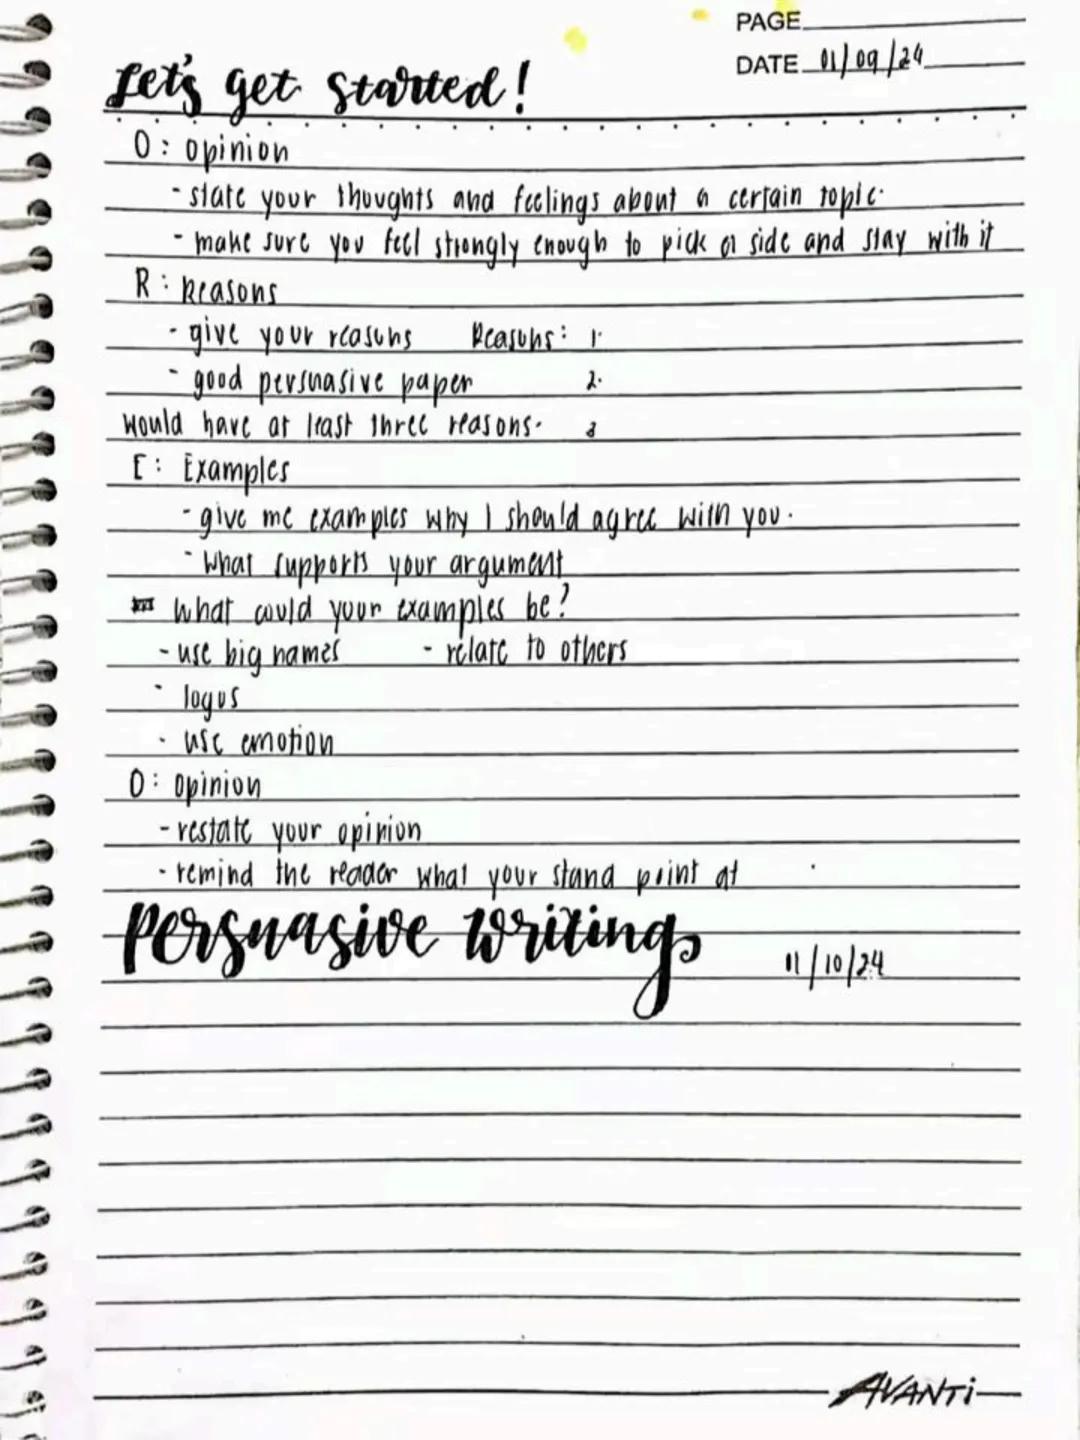 PAGE
DATE 01/09/24
Let's get started!
O: Opinion
- state your thoughts and feelings about a certain topic.
- make sure you feel strongly enough to pick a side and stay with it
R: Reasons
- give your reasons Reasons: 1.
- good persuasive paper 2.
would have at least three reasons. 3
E: Examples
- give me examples why I should agree with you.
- What supports your argument
What could your examples be?
- use big names - relate to others
- logos
- use emotion
O: Opinion
- restate your opinion
- remind the reader what your stand point at
Persuasive Writing
11/10/24
AVANTi